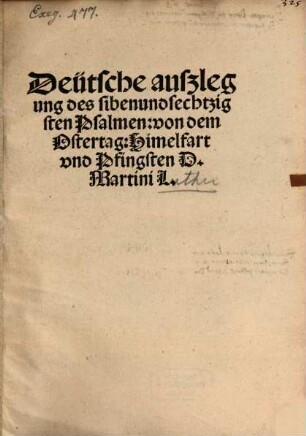 Exeg. 477.
325
Deütsche auszleg
ung des sibenundsechtzig
sten Psalmen: von dem
Ostertag: Himelfart
vnd Pfingsten D.
Martini L. uther